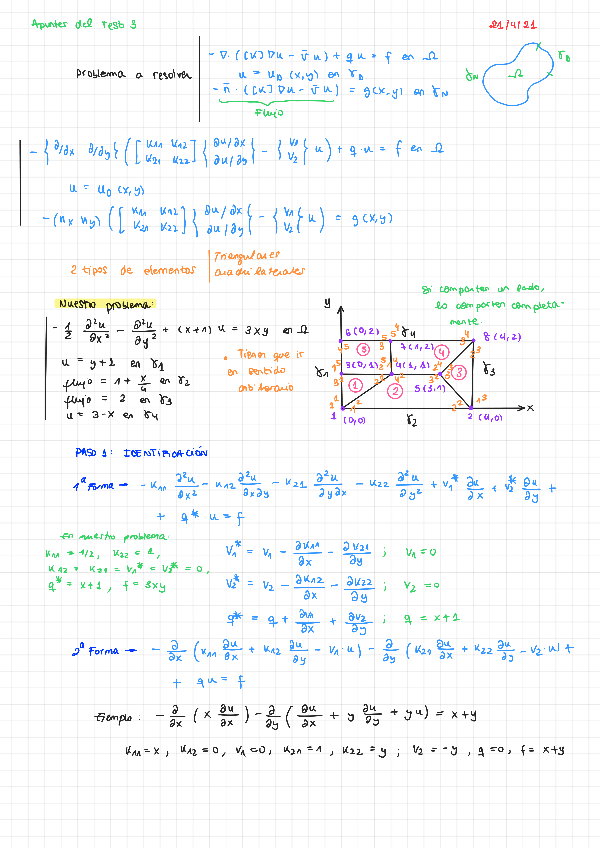 Apuntes del resb 3
21/4/21
problema a resolver
- ∇ · ([K] ∇u - v̄ u) + qu = f en Ω
u = u_D (x,y) en γ_D
- n̄ · ([K] ∇u - v̄ u) = g(x,y) en γ_N
Flujo
γ_N Ω γ_D
- {∂/∂x ∂/∂y} ([K11 K12 / K21 K22] {∂u/∂x / ∂u/∂y} - {V1 / V2} u) + q·u = f en Ω
u = u_D (x,y)
- (n_x n_y) ([K11 K12 / K21 K22] {∂u/∂x / ∂u/∂y} - {V1 / V2} u) = g(x,y)
2 tipos de elementos
Triangulares
cuadrilaterales
Si comparten un lado,
lo comparten completa-
mente
Nuestro problema:
- 1/2 ∂²u/∂x² - ∂²u/∂y² + (x+1) u = 3xy en Ω
u = y+2 en γ1
flujo = 1 + x/4 en γ2
flujo = 2 en γ3
u = 3-x en γ4
• Tienen que ir
en sentido
antihorario
y
6(0,2)
γ4
7(1,2)
8(4,2)
γ1
3(0,1)
4(1,1)
5(3,1)
γ3
1
(0,0)
γ2
2 (4,0)
x
PASO 1: IDENTIFICACIÓN
1ª Forma → - K11 ∂²u/∂x² - K12 ∂²u/∂x∂y - K21 ∂²u/∂y∂x - K22 ∂²u/∂y² + V1* ∂u/∂x + V2* ∂u/∂y +
+ q* u = f
En nuestro problema:
K11 = 1/2, K22 = 1,
K12 = K21 = V1* = V2* = 0,
q* = x+1, f = 3xy
V1* = V1 - ∂K11/∂x - ∂K21/∂y ; V1 = 0
V2* = V2 - ∂K12/∂x - ∂K22/∂y ; V2 = 0
q* = q + ∂V1/∂x + ∂V2/∂y ; q = x+1
2ª Forma → - ∂/∂x (K11 ∂u/∂x + K12 ∂u/∂y - V1·u) - ∂/∂y (K21 ∂u/∂x + K22 ∂u/∂y - V2·u) +
+ qu = f
Ejemplo: - ∂/∂x (x ∂u/∂x) - ∂/∂y (∂u/∂x + y ∂u/∂y + yu) = x+y
K11 = x, K12 = 0, V1 = 0, K21 = 1, K22 = y ; V2 = -y, q = 0, f = x+y